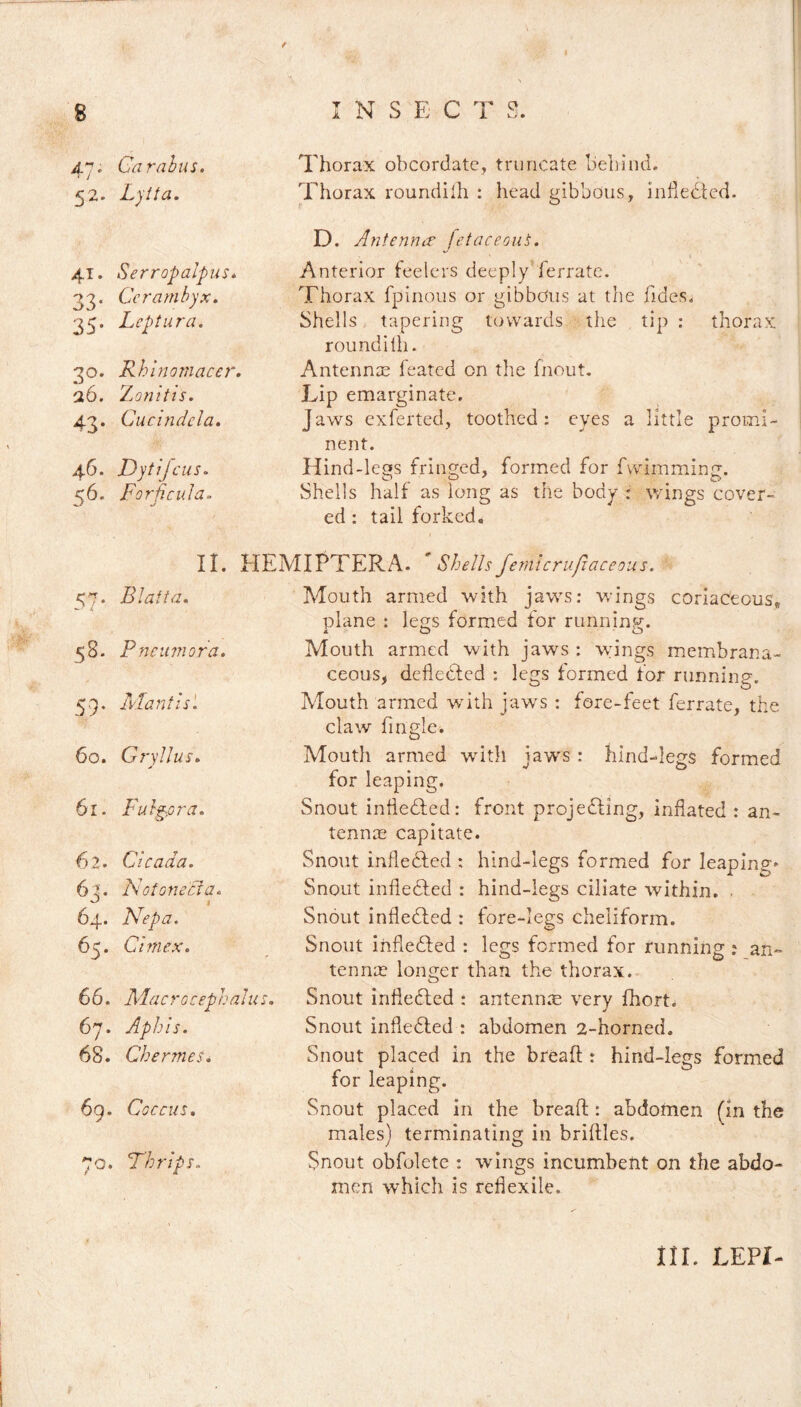 8 INSECTS.
47. Carabus. Thorax obcordate, truncate behind.
52. Lytta. Thorax roundiſh : head gibbous, inflected.
D. Antennæ ſetaceous.
41. Serropalpus. Anterior feelers deeply ſerrate.
33. Cerambyx. Thorax ſpinous or gibbous at the ſides.
35. Leptura. Shells tapering towards the tip : thorax
roundiſh.
30. Rhinomacer. Antennæ ſeated on the ſnout.
26. Zonitis. Lip emarginate.
43. Cucindela. Jaws exſerted, toothed : eyes a little promi-
nent.
46. Dytiſcus. Hind-legs fringed, formed for ſwimming.
56. Forficula. Shells half as long as the body : wings cover-
ed : tail forked.
II. HEMIPTERA. Shells ſemicruſtaceous.
57. Blatta. Mouth armed with jaws: wings coriaceous,
plane : legs formed for running.
58. Pneumora. Mouth armed with jaws : wings membrana-
ceous, deflected : legs formed for running.
59. Mantis. Mouth armed with jaws : fore-feet ſerrate, the
claw ſingle.
60. Gryllus. Mouth armed with jaws : hind-legs formed
for leaping.
61. Fulgora. Snout inflected: front projecting, inflated : an-
tennæ capitate.
62. Cicada. Snout inflected : hind-legs formed for leaping.
63. Notonecta. Snout inflected : hind-legs ciliate within.
64. Nepa. Snout inflected : fore-legs cheliform.
65. Cimex. Snout inflected : legs formed for running : an-
tennæ longer than the thorax.
66. Macrocephalus. Snout inflected : antennæ very ſhort.
67. Aphis. Snout inflected : abdomen 2-horned.
68. Chermes. Snout placed in the breaſt : hind-legs formed
for leaping.
69. Coccus. Snout placed in the breaſt : abdomen (in the
males) terminating in briſtles.
70. Thrips. Snout obſolete : wings incumbent on the abdo-
men which is reflexile.
III. LEPI-